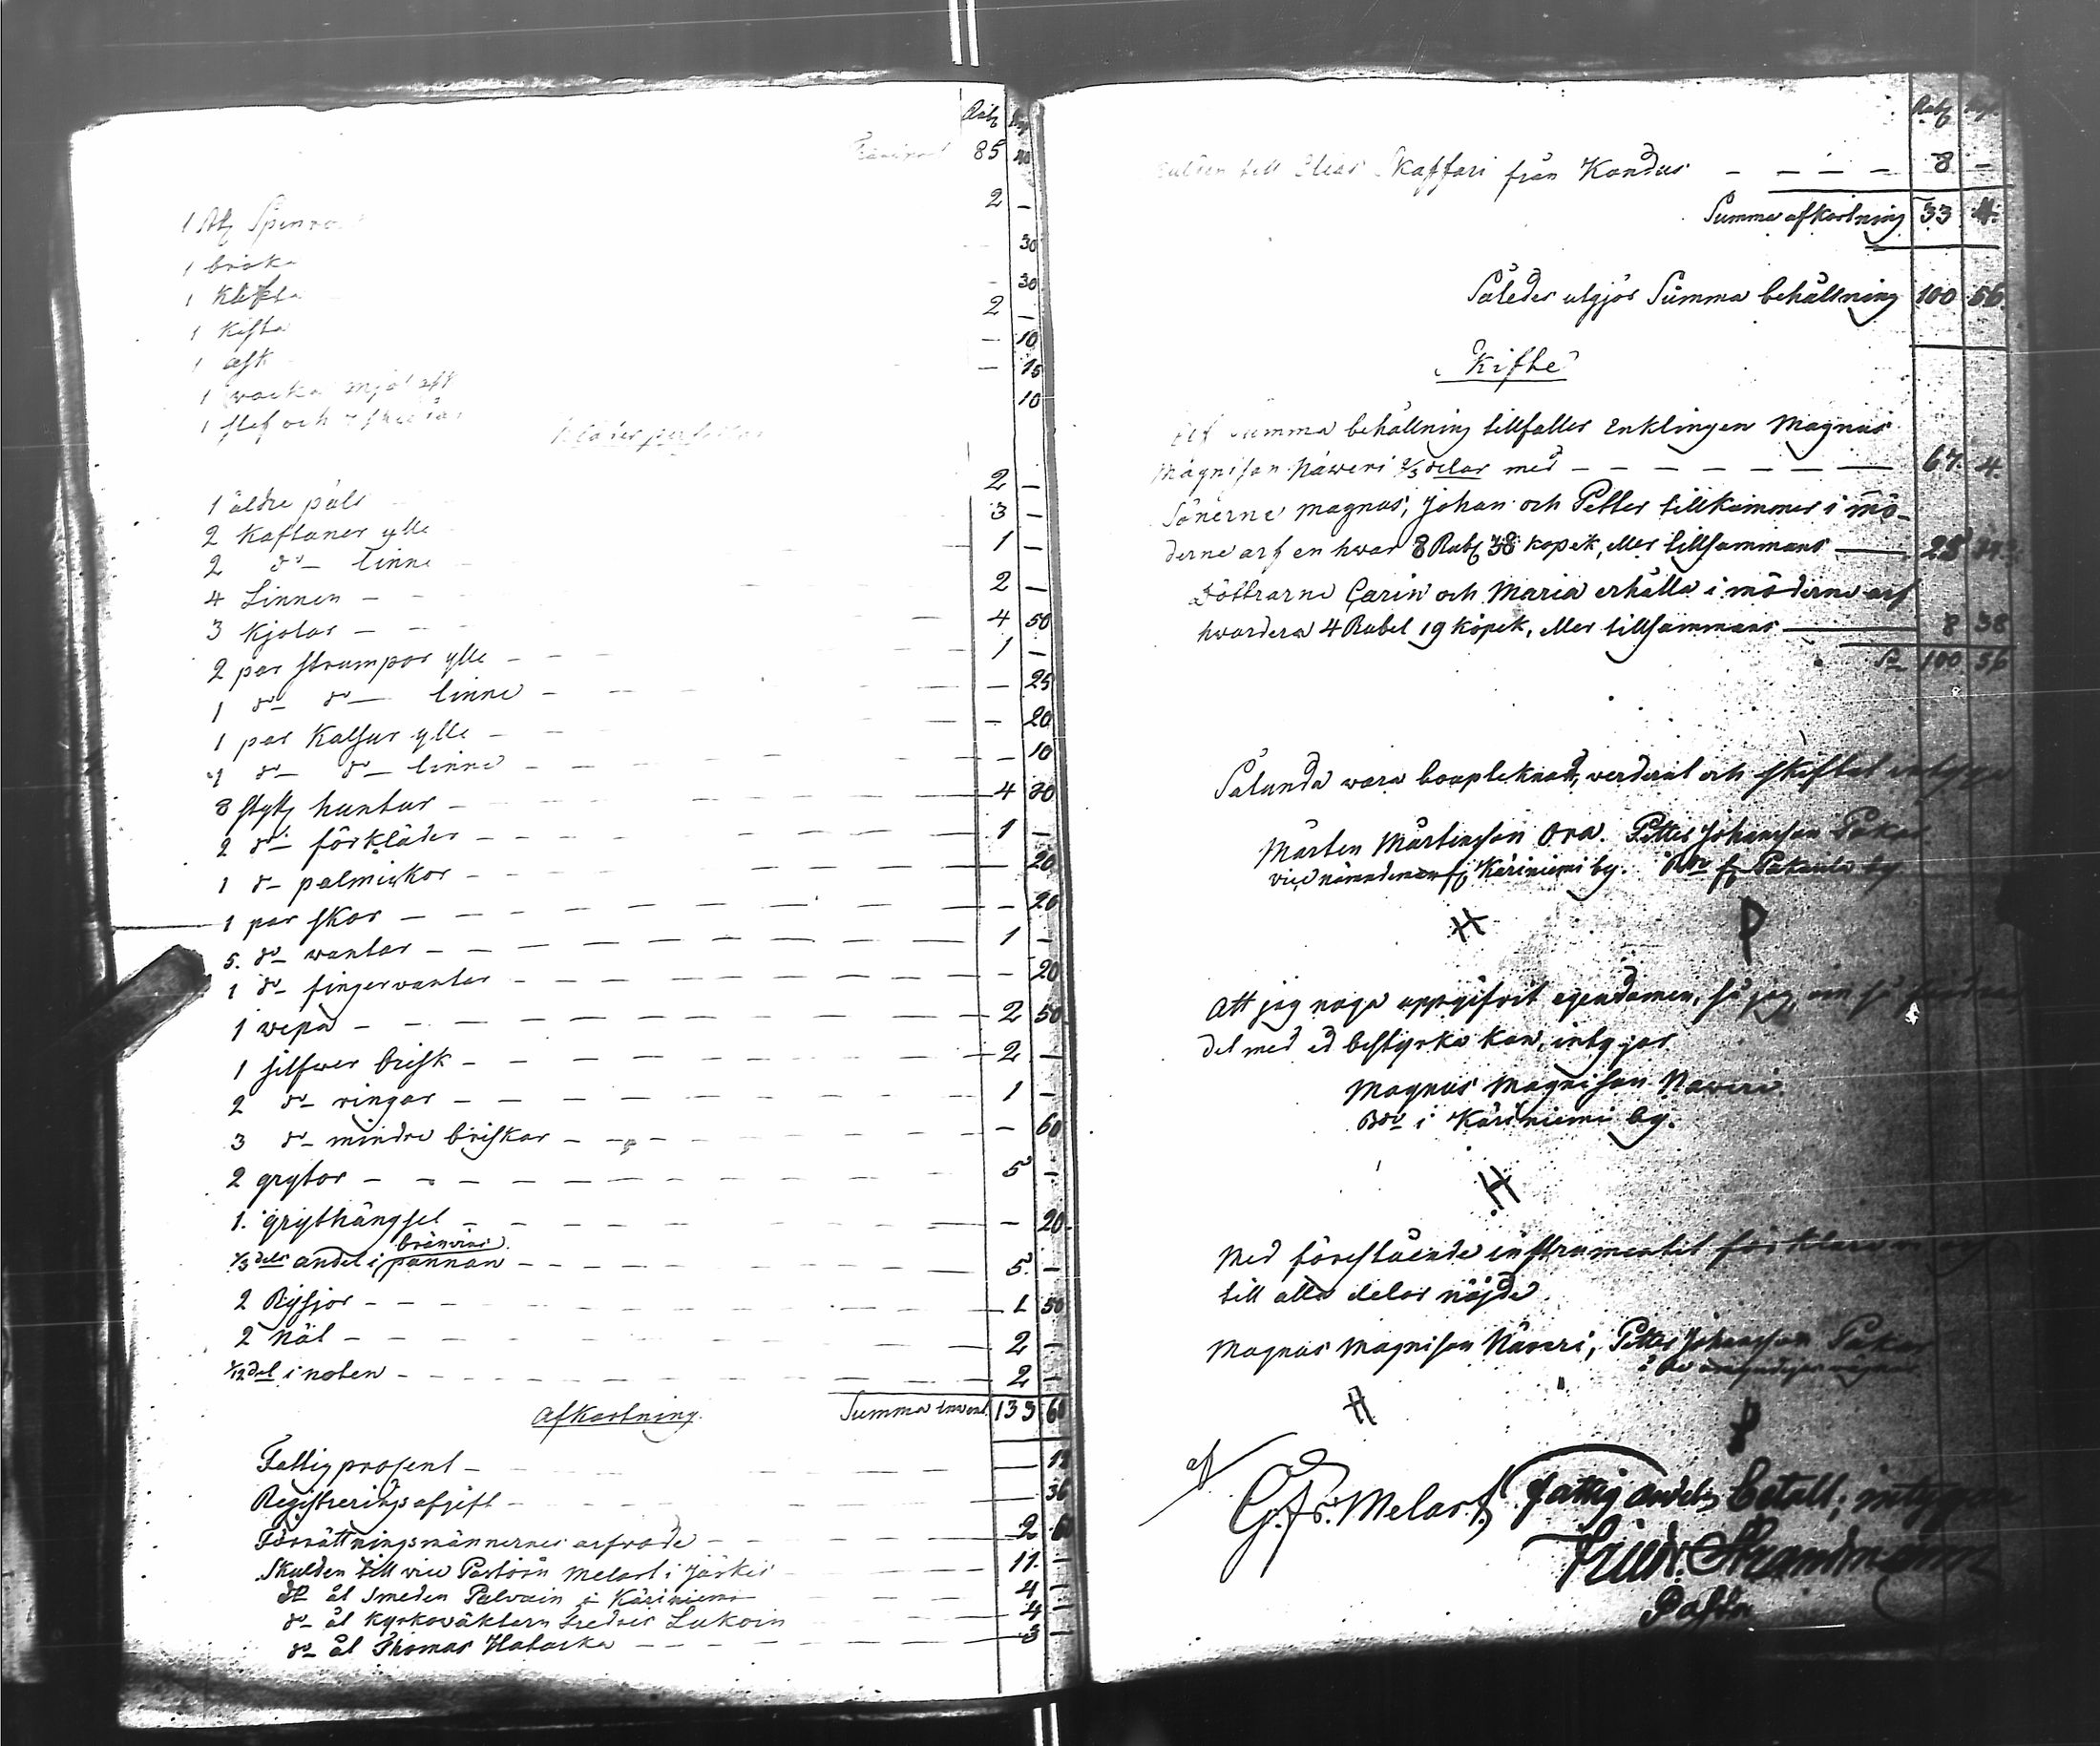 Rub. Kop
Transport 85
1 st. Spinnrock 2 —
1 bråka — 30
1 klikta — 30
1 kista 2 —
1 ask — 10
1 mjöl ask — 15
1 slef och 10
Kläder
1 äldre päls 2 —
2 Kaftaner ylle 3 —
2 do linne 1 —
4 Linnen — 2 —
3 kjolar — 4 50
2 par strumpor ylle — 1 —
1 do do linne — — 25
1 par Kalsur ylle — — 20
1 do do linne — — 10
8 styk huntur — 4 20
2 do förkläder — 1 —
1 do palmickor — 20
1 par skor — 20
5. do wantar — 1 —
1 do fingervantar — — 20
1 wepa — 2 50
1 silfwer brisk — 2 —
2 do ringar — 1 —
3 do mindre briskar — — 60
2 grytor — 5 —
1. grythängsel — — 20
1/3 dels andel i bränvins pannan — 5. —
2 Rysjor — 1 50
2 Nät — 2 —
1/12 del i noten — 2 —
Afkortning. Summa Invent. 133 60
Fattigprosent —
Registreringsafgift — 36
Förrättningsmännernes arfvode — 2
Skulden till vice Pastorn Melart i Jäskis 11. —
do åt Smeden Palvain i Käriniemi 4 —
do åt Kyrkoväktarn Fredric Lukoin 4 —
do åt Thomas Hatacka — 3 —
Rub. Kop.
Skulden till Elias Skaffari från Kondus — 8 —
Summa afkortning 33 4.
Således utgjör Summa behållning 100 56.
Skifte
Af Summa behållning tillfaller Enklingen Magnus
Magnison Näweri 2/3 delar med — 67. 4.
Sönerne Magnus, Johan och Petter tillkommer i mö-
derne arf en hwar 8 Rub 38 kopek, eller tillsammans — 25
Döttrarne Carin och Maria erhålla i möderne arf
hvardera 4 Rubel 19 kopek, eller tillsammans — 8 38
Sa 100 56
Sålunda vara bouptecknadt, verderat och skiftat
Mårten Mårtensson Ora. Petter Johansson Pakar
vice nämndeman fr. Käriniemi by. Bde fr. Pakanla by
H P
Att jag noga uppgifvit egendomen, så jag, om så
det med ed bestyrka kan, intygar
Magnus Magnison Naveri.
Bde i Käriniemi by.
H
Med förestående instrumentet förklara
till alla delar nöjde
Magnus Magnison Näveri, Petter Johansson Pakar
H P
af
G. Fr. Melart. Fattig andeln betalt; intygar
Fridr. Strandmann
Pastor